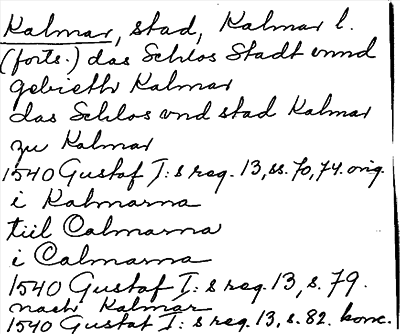 Kalmar, stad, Kalmar l.
(forts.) das Schlos Stadt vnnd
gebieth Kalmar
das Schlos vnd stad Kalmar
zu Kalmar
1540 Gustaf I:s reg. 13, ss. 70, 74. orig.
i Kalmarna
tiil Calmarna
i Calmarna
1540 Gustaf I:s reg. 13, s. 79.
nach Kalmar
1540 Gustaf I:s reg. 13, s. 82. konc.